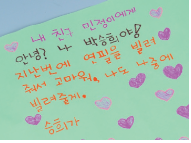 내 친구 민정이에게
안녕? 나 박승희야!
지난번에 연필을 빌려
줘서 고마워. 나도 나중에
빌려줄게.
승희가